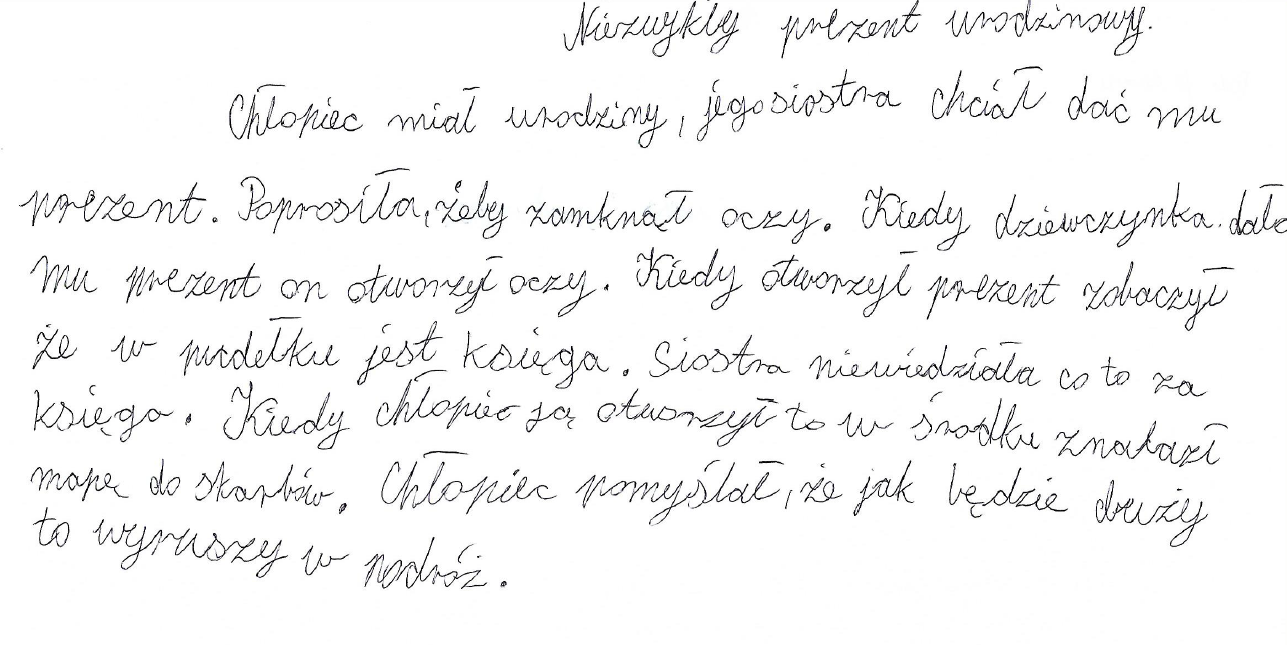 Niezwykły prezent urodzinowy.
Chłopiec miał urodziny, jego siostra chciał dać mu
prezent. Poprosiła, żeby zamknął oczy. Kiedy dziewczynka dała
mu prezent on otworzył oczy. Kiedy otworzył prezent zobaczył
że w pudełku jest księga. Siostra niewiedziała co to za
księga. Kiedy chłopiec ją otworzył to w środku znalazł
mapę do skarbów. Chłopiec pomyślał, że jak będzie duży
to wyruszy w podróż.